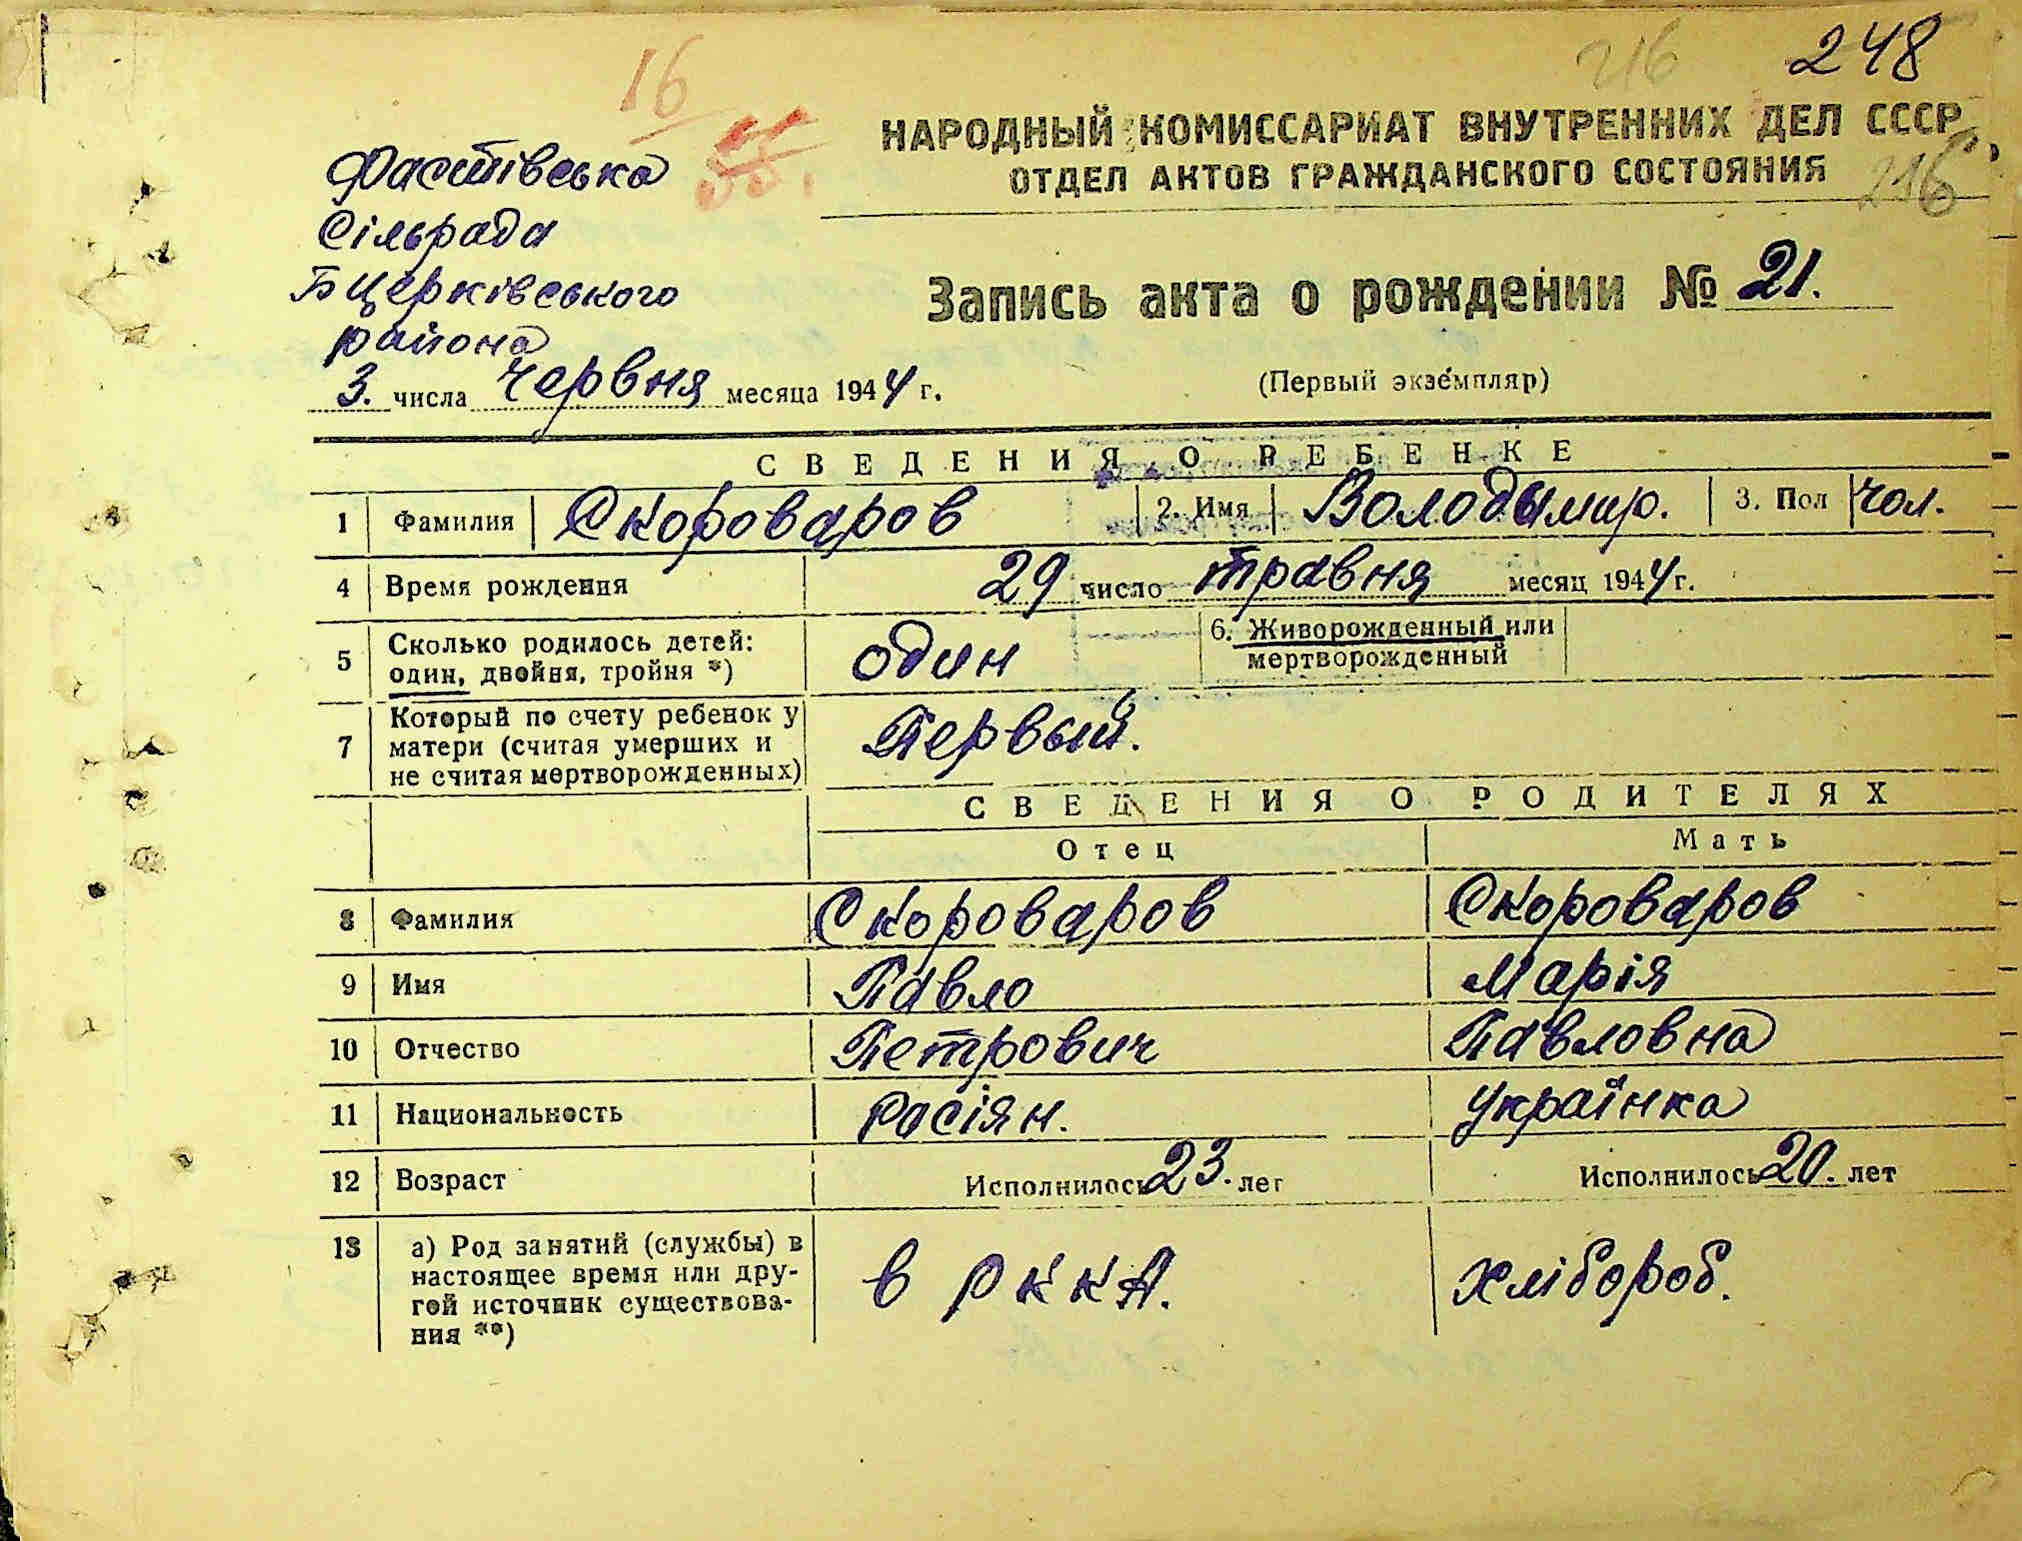 216 248
16
55.
НАРОДНЫЙ КОМИССАРИАТ ВНУТРЕННИХ ДЕЛ СССР
ОТДЕЛ АКТОВ ГРАЖДАНСКОГО СОСТОЯНИЯ
216
Фастівська
Сільрада
Б Церківського
района
Запись акта о рождении № 21.
3. числа Червня месяца 1944 г.
(Первый экземпляр)
СВЕДЕНИЯ О РЕБЕНКЕ
1 Фамилия Скороваров 2. Имя Володымир. 3. Пол чол.
4 Время рождения 29 число травня месяц 1944 г.
5 Сколько родилось детей: один, двойня, тройня *) один 6. Живорожденный или мертворожденный
7 Который по счету ребенок у матери (считая умерших и не считая мертворожденных) Первый.
СВЕДЕНИЯ О РОДИТЕЛЯХ
Отец Мать
8 Фамилия Скороваров Скороваров
9 Имя Павло Марія
10 Отчество Петрович Павловна
11 Национальность росіян. українка
12 Возраст Исполнилось 23. лет Исполнилось 20. лет
13 а) Род занятий (службы) в настоящее время или дру-
гой источник существова-
ния **) в РККА. хлібороб.